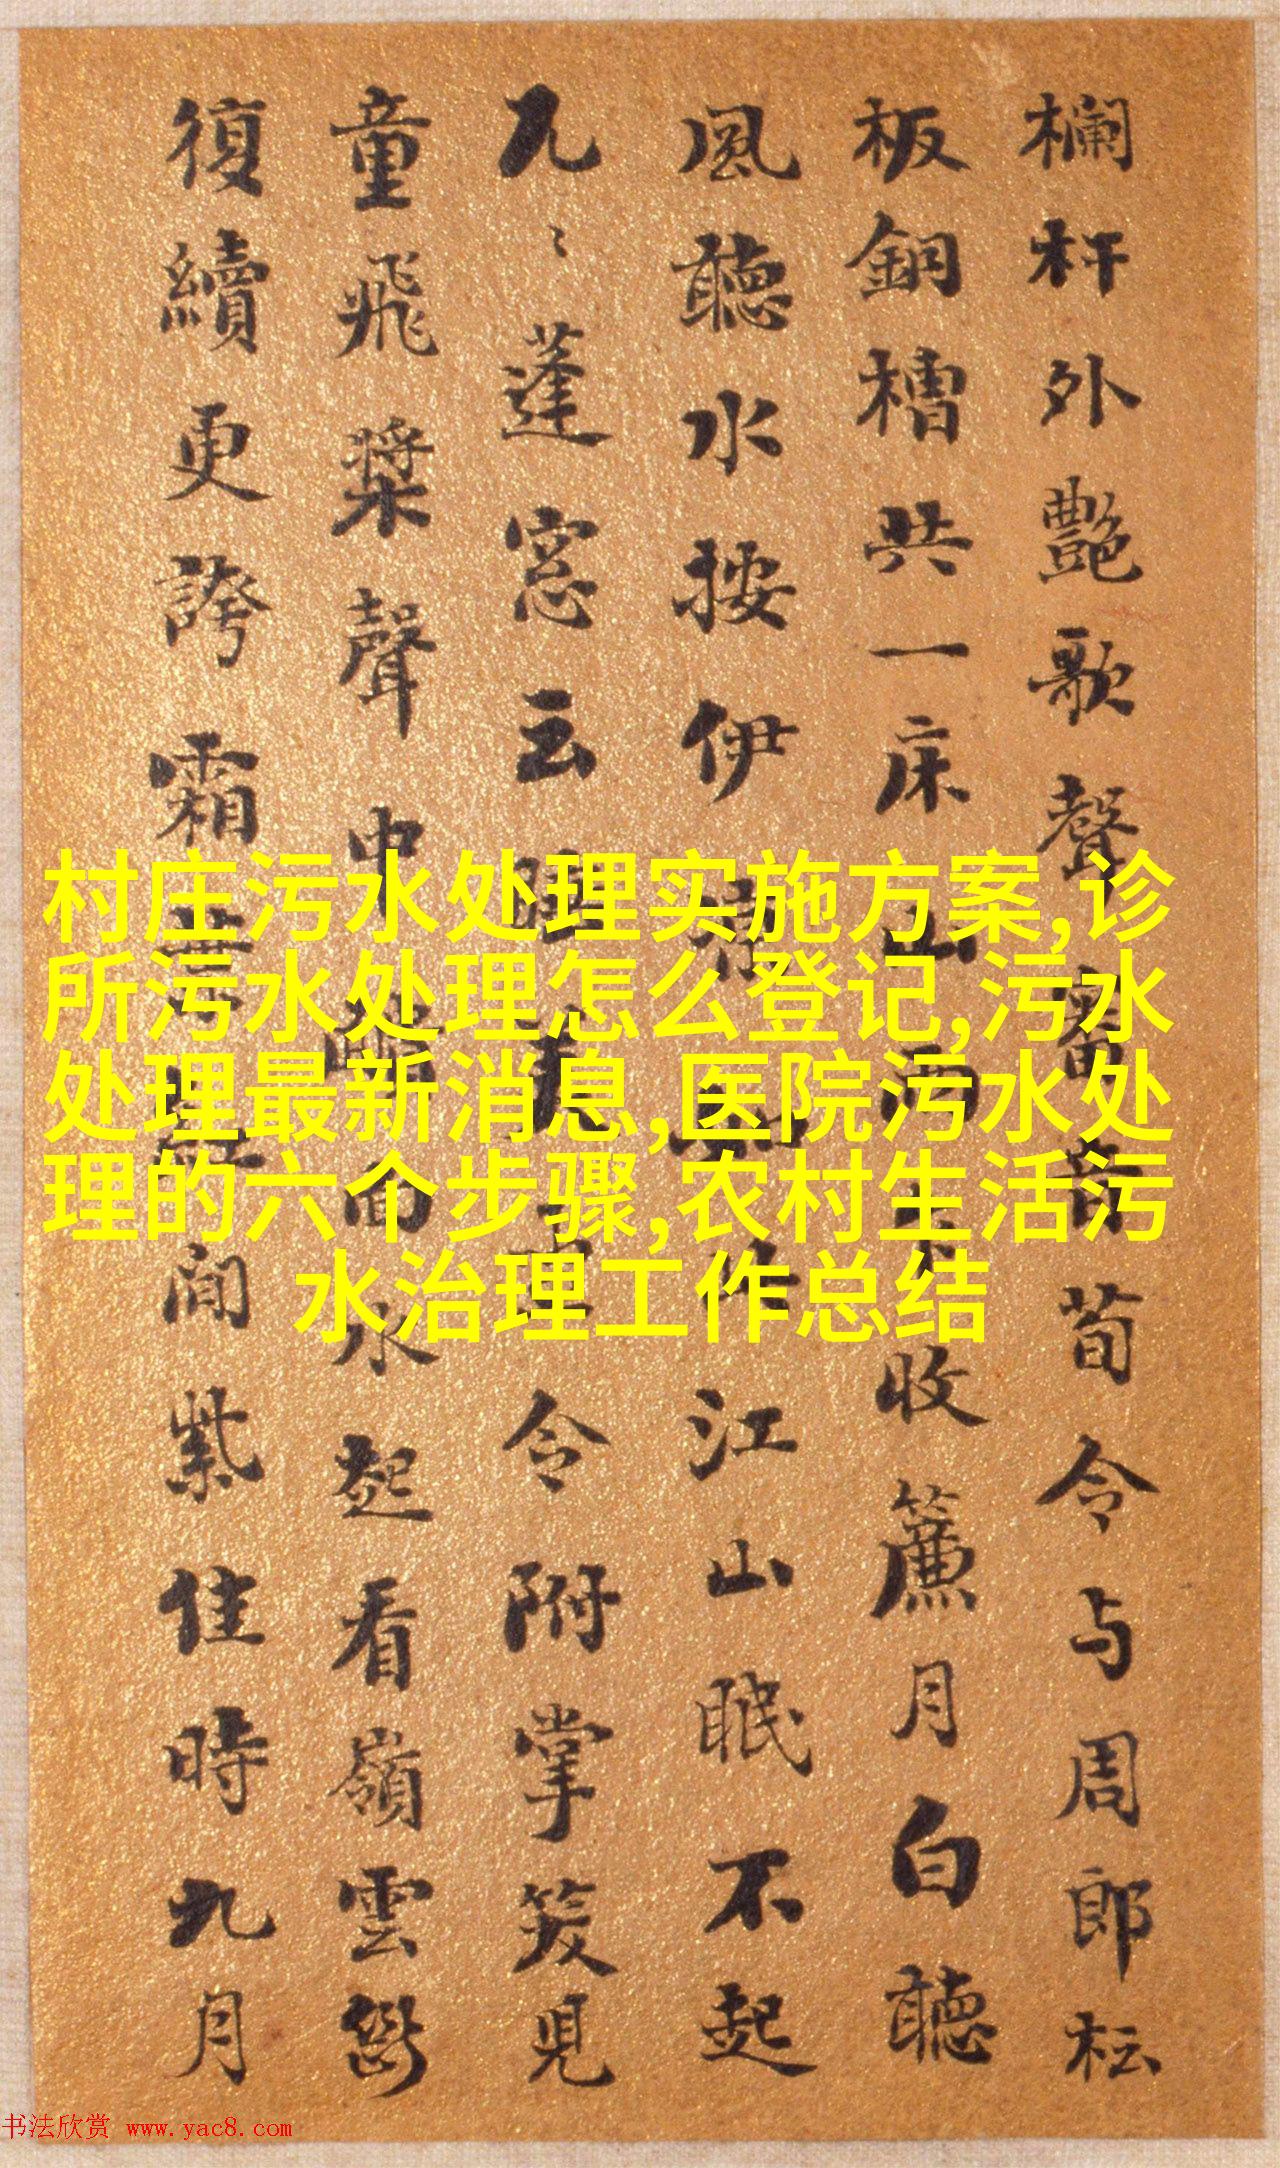 村庄污水处理实施方案,诊
所污水处理怎么登记,污水
处理最新消息,医院污水处
理的六个步骤,农村生活污
水治理工作总结
欄杆外艷歌聲番音荀令与周郎
板銅槽共一床山雨收簾月白聽
風聽水按伊涼江山眠不起
九〻蓬窓云眠令附掌笑見
童飛槳聲中面水起看嶺雲
復續更誇霜間紫佳時九月
书法欣赏 www.yac8.com